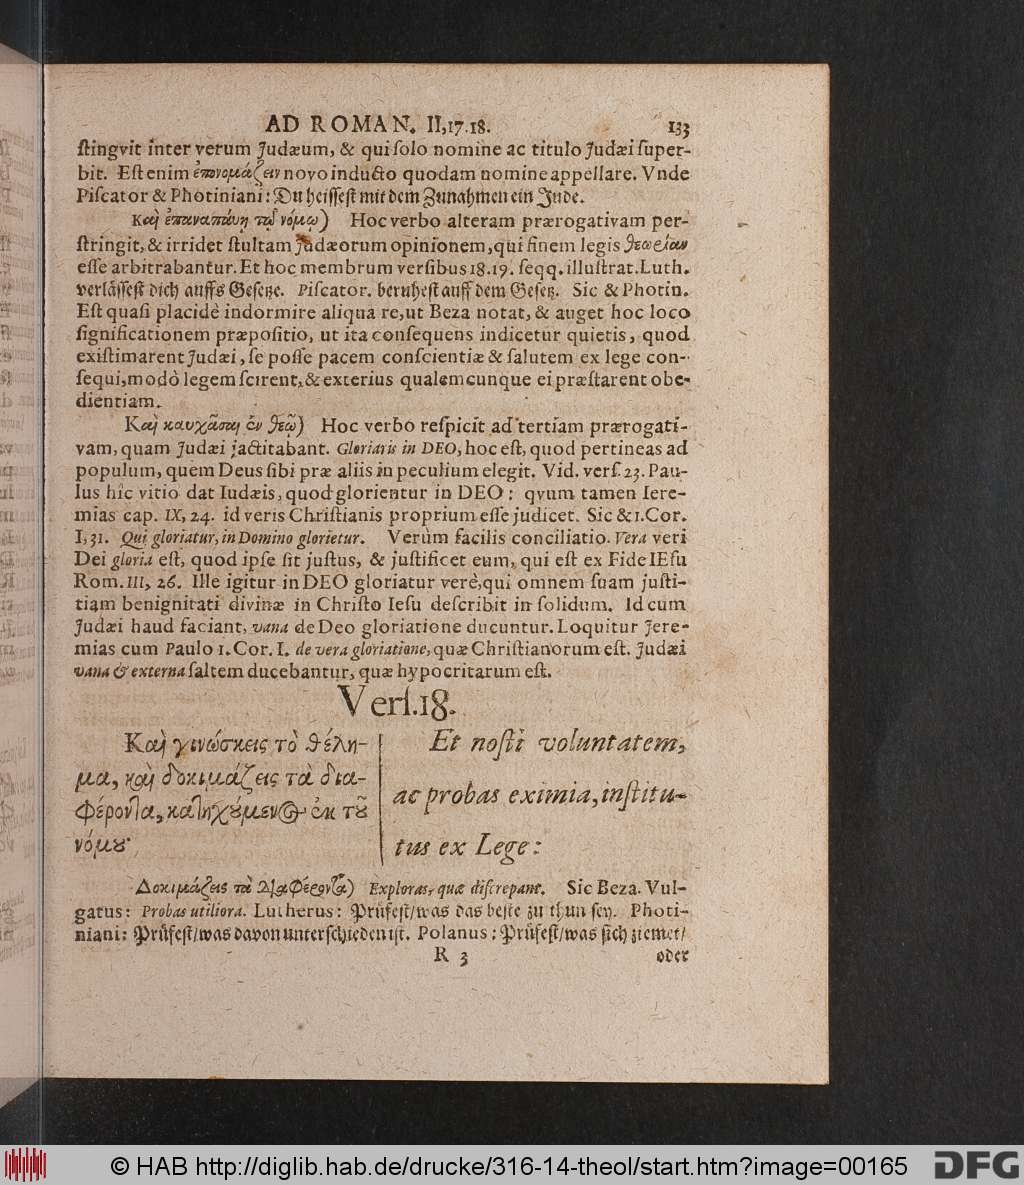 AD ROMAN. II,17.18. 133
ſtingvit inter verum Judæum, & qui ſolo nomine ac titulo Judæi ſuper-
bit. Eſt enim ἐπονομάζειν novo inducto quodam nomine appellare. Vnde
Piſcator & Photiniani: Du heiſſeſt mit dem Zunahmen ein Jude.
Καὶ ἐπαναπάυῃ τῷ νόμῳ) Hoc verbo alteram prærogativam per-
ſtringit, & irridet ſtultam Judæorum opinionem, qui finem legis θεωρίαν
eſſe arbitrabantur. Et hoc membrum verſibus 18.19. ſeqq. illuſtrat. Luth.
verläſſeſt dich auffs Geſetze. Piſcator. beruheſt auff dem Geſetz. Sic & Photin.
Eſt quaſi placidè indormire aliqua re, ut Beza notat, & auget hoc loco
ſignificationem præpoſitio, ut ita conſequens indicetur quietis, quod
exiſtimarent Judæi, ſe poſſe pacem conſcientiæ & ſalutem ex lege con-
ſequi, modò legem ſcirent, & exterius qualemcunque ei præſtarent obe-
dientiam.
Καὶ καυχᾶσαι ἐν θεῷ) Hoc verbo reſpicit ad tertiam prærogati-
vam, quam Judæi jactitabant. Gloriaris in DEO, hoc eſt, quod pertineas ad
populum, quem Deus ſibi præ aliis in peculium elegit. Vid. verſ. 23. Pau-
lus hic vitio dat Iudæis, quod glorientur in DEO: qvum tamen Iere-
mias cap. IX, 24. id veris Chriſtianis proprium eſſe judicet. Sic & 1. Cor.
I, 31. Qui gloriatur, in Domino glorietur. Verùm facilis conciliatio. Vera veri
Dei gloria eſt, quod ipſe ſit juſtus, & juſtificet eum, qui eſt ex Fide IEſu
Rom. III, 26. Ille igitur in DEO gloriatur verè, qui omnem ſuam juſti-
tiam benignitati divinæ in Chriſto Ieſu deſcribit in ſolidum. Id cum
Judæi haud faciant, vana de Deo gloriatione ducuntur. Loquitur Jere-
mias cum Paulo 1. Cor. I. de vera gloriatione, quæ Chriſtianorum eſt. Judæi
vana & externa ſaltem ducebantur, quæ hypocritarum eſt.
Verſ. 18.
Καὶ γινώσκεις τὸ θέλη-
μα, καὶ δοκιμάζεις τὰ δια-
φέροντα, κατηχούμενος ἐκ τοῦ
νόμου·
Et noſti voluntatem,
ac probas eximia, inſtitu-
tus ex Lege:
Δοκιμάζεις τὰ διαφέροντα) Exploras, quæ diſcrepant. Sic Beza. Vul-
gatus: Probas utiliora. Lutherus: Prüfeſt/ was das beſte zu thun ſey. Photi-
niani: Prüfeſt/ was davon unterſchieden iſt. Polanus: Prüfeſt/ was ſich ziemet/
R 3 oder
© HAB http://diglib.hab.de/drucke/316-14-theol/start.htm?image=00165 DFG